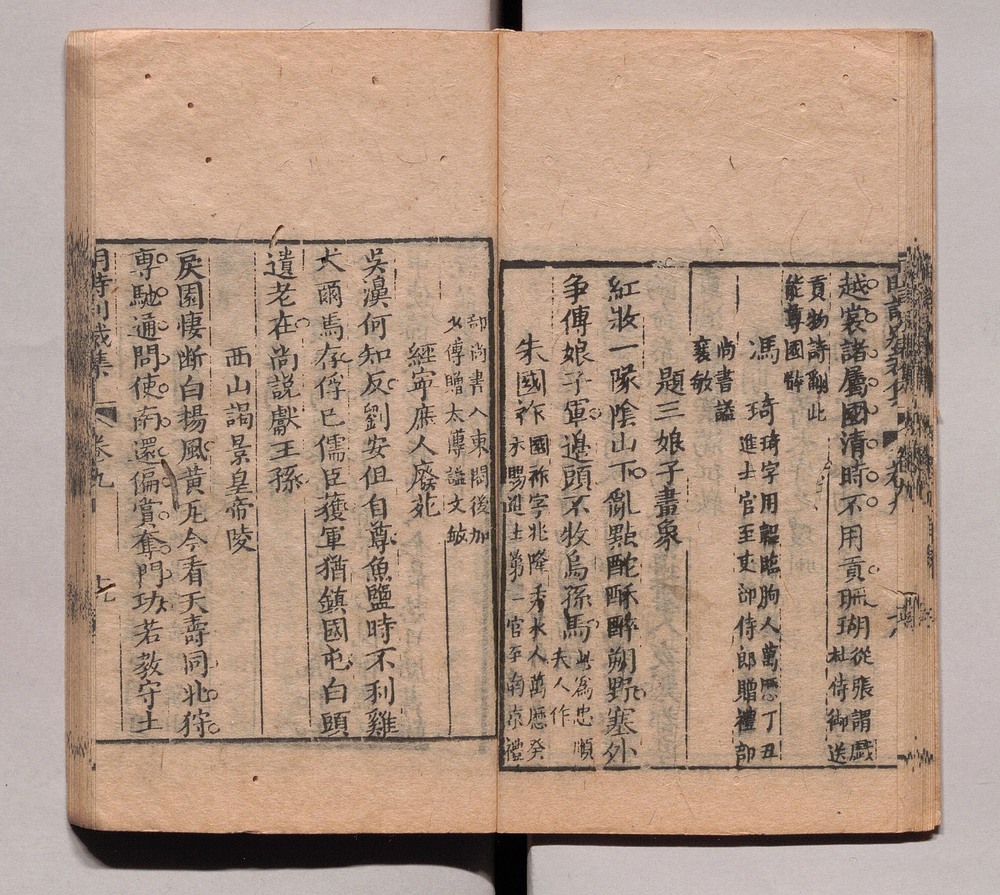 越裳諸屬國清時不用貢珊瑚從張謂戲
杜侍御送
貢物詩翻此
能尊國體
馮琦琦字用韞臨朐人萬曆丁丑
進士官至吏部侍郎贈禮部
尚書謚
襄敏
題三娘子畫象
紅妝一隊陰山下亂點酡酥醉朔野塞外
爭傳娘子軍邊頭不牧烏孫馬此爲忠順
夫人作
朱國祚國祚字兆隆秀水人萬曆癸
未賜進士第一官至南京禮
部尚書入東閣後加
少傅贈太傅謚文敏
經寧庶人廢苑
吳濞何知反劉安但自尊魚鹽時不利雞
犬爾焉存俘已儒臣獲軍猶鎮國屯白頭
遺老在尚說獻王孫
西山謁景皇帝陵
戾園悽斷白楊風黃屋今看天壽同北狩
專馳通問使南還偏賞奪門功若教守土
明詩別裁集 卷九